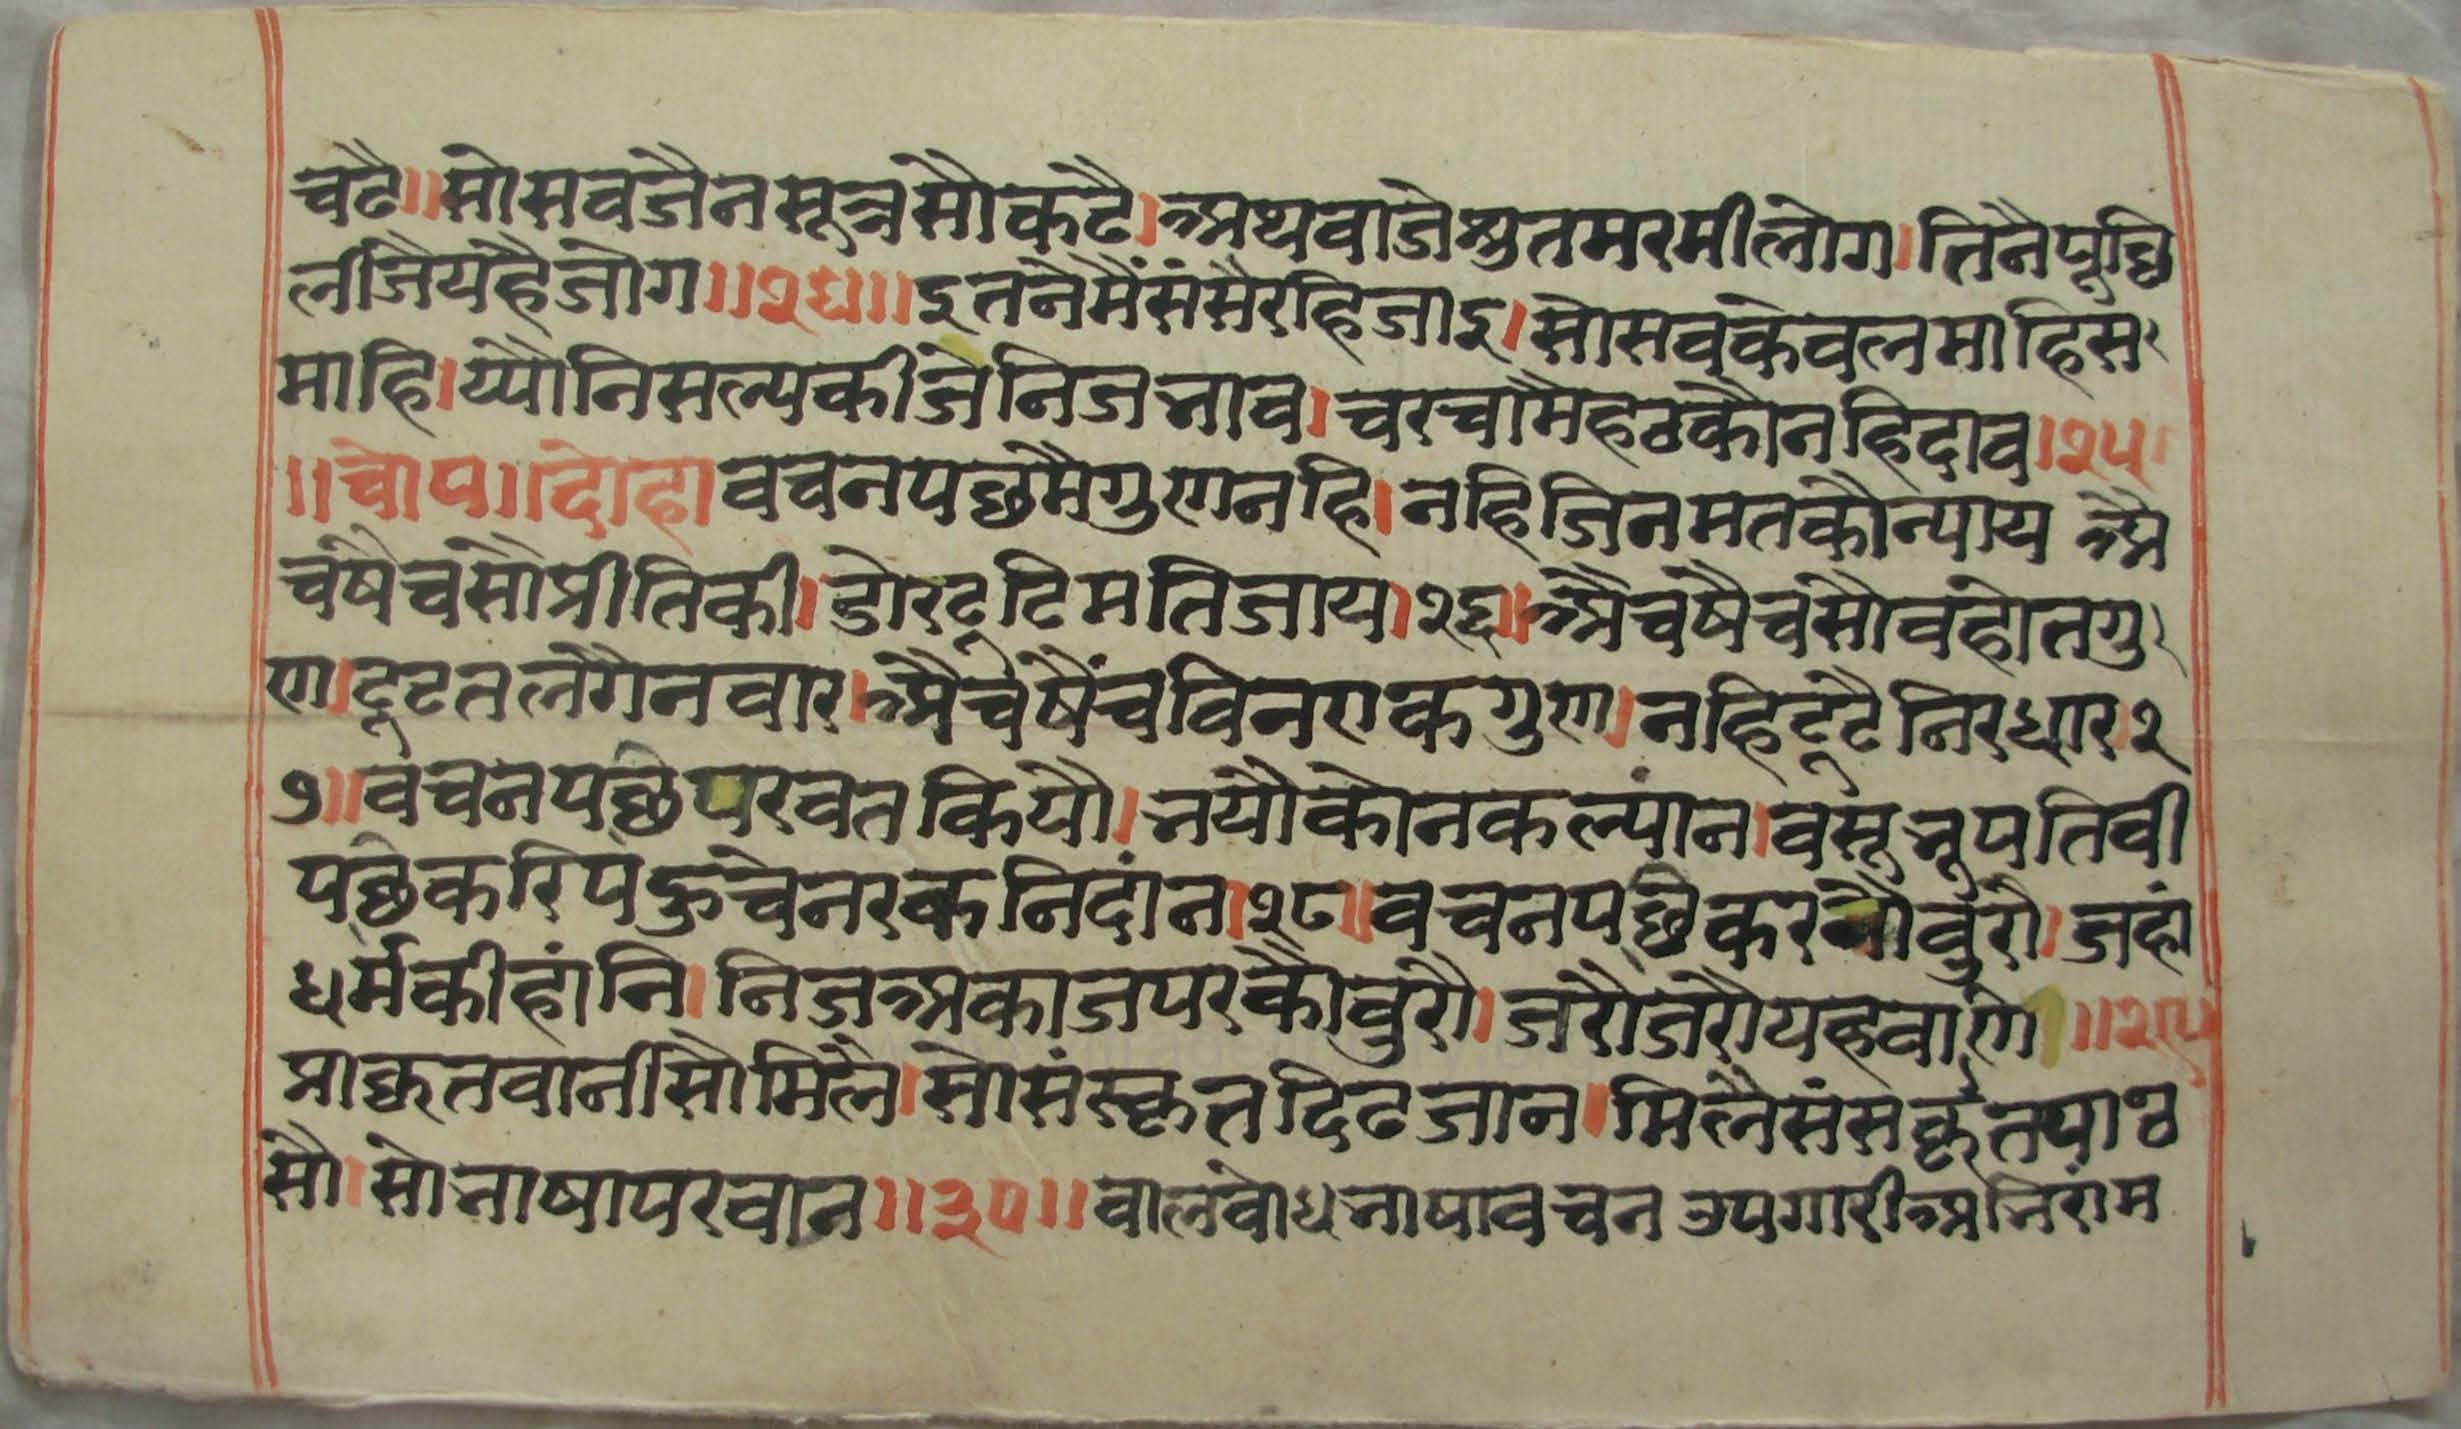 चढै॥सोसवजैनसूत्रसौकढै।अथवाजेश्रुतमरमीलोग।तिनैपूछि
लीजैयहैजोग॥२४॥इतनैमैंसंसैरहिजाइ।सोसवकेवलमाहिस
माहि।य्यौनिसल्यकीजेनिजभाव।चरचामैहठकौनहिदाव।२५
॥चोप॥दोहावचनपछमैगुणनहि।नहिजिनमतकौन्यायअै
चषैचसौप्रीतिकी।डोरटूटिमतिजाय।२६॥अैचषैचसौवहोतगु
ण।टूटतलगैनवार।अैचषैंचविनएकगुण।नहिटूटैनिरधार।२
७॥वचनपछिपरवतकियौ।भयौकौनकल्यांन।वसूभूपतिवी
पछिकरिपहुचेनरकनिदांन।२८॥वचनपछिकरवौवुरौ।जहां
धर्मकीहांनि।निजअकाजपरकौवुरौ।जरौजरौयहवाणि॥२९॥
प्राकृतवानीसौमिलै।सोसंस्कृतदिढजान।मिलैसंसकृतपाठ
सौ।सोभाषापरवान॥३०॥वालवोधभाषावचनउपगारीअभिरांम